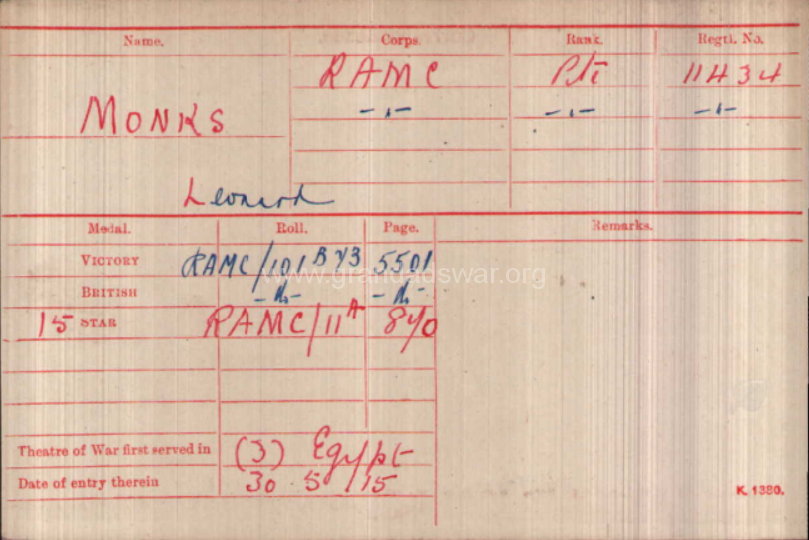 Name. Corps. Rank. Regtl. No.
RAMC Pte 11434
MONKS -"- -"- -"-
Leonard
Medal. Roll. Page. Remarks.
VICTORY RAMC/101 B 5501
BRITISH -do- -do-
15 STAR RAMC/11A
www.grandadswar.org
Theatre of War first served in (3) Egypt
Date of entry therein 30 5/15
K. 1380.